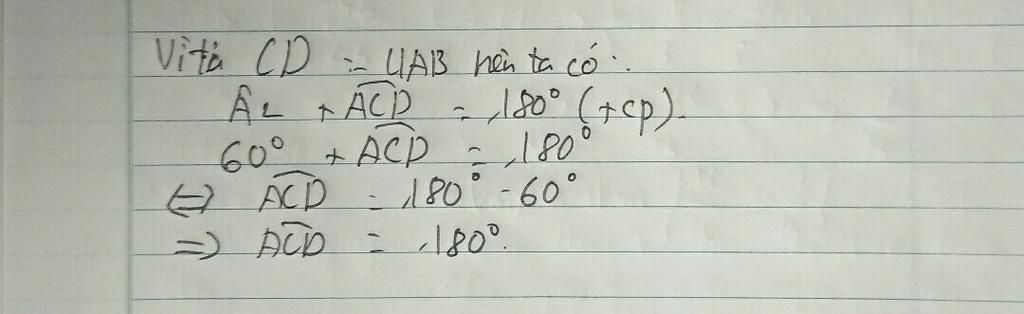 Vì tia CD = UAB nên ta có:
Â₂ + ACD = 180° (+cp).
60° + ACD = 180°
⇔ ACD = 180° - 60°
⇒ ACD = 180°.